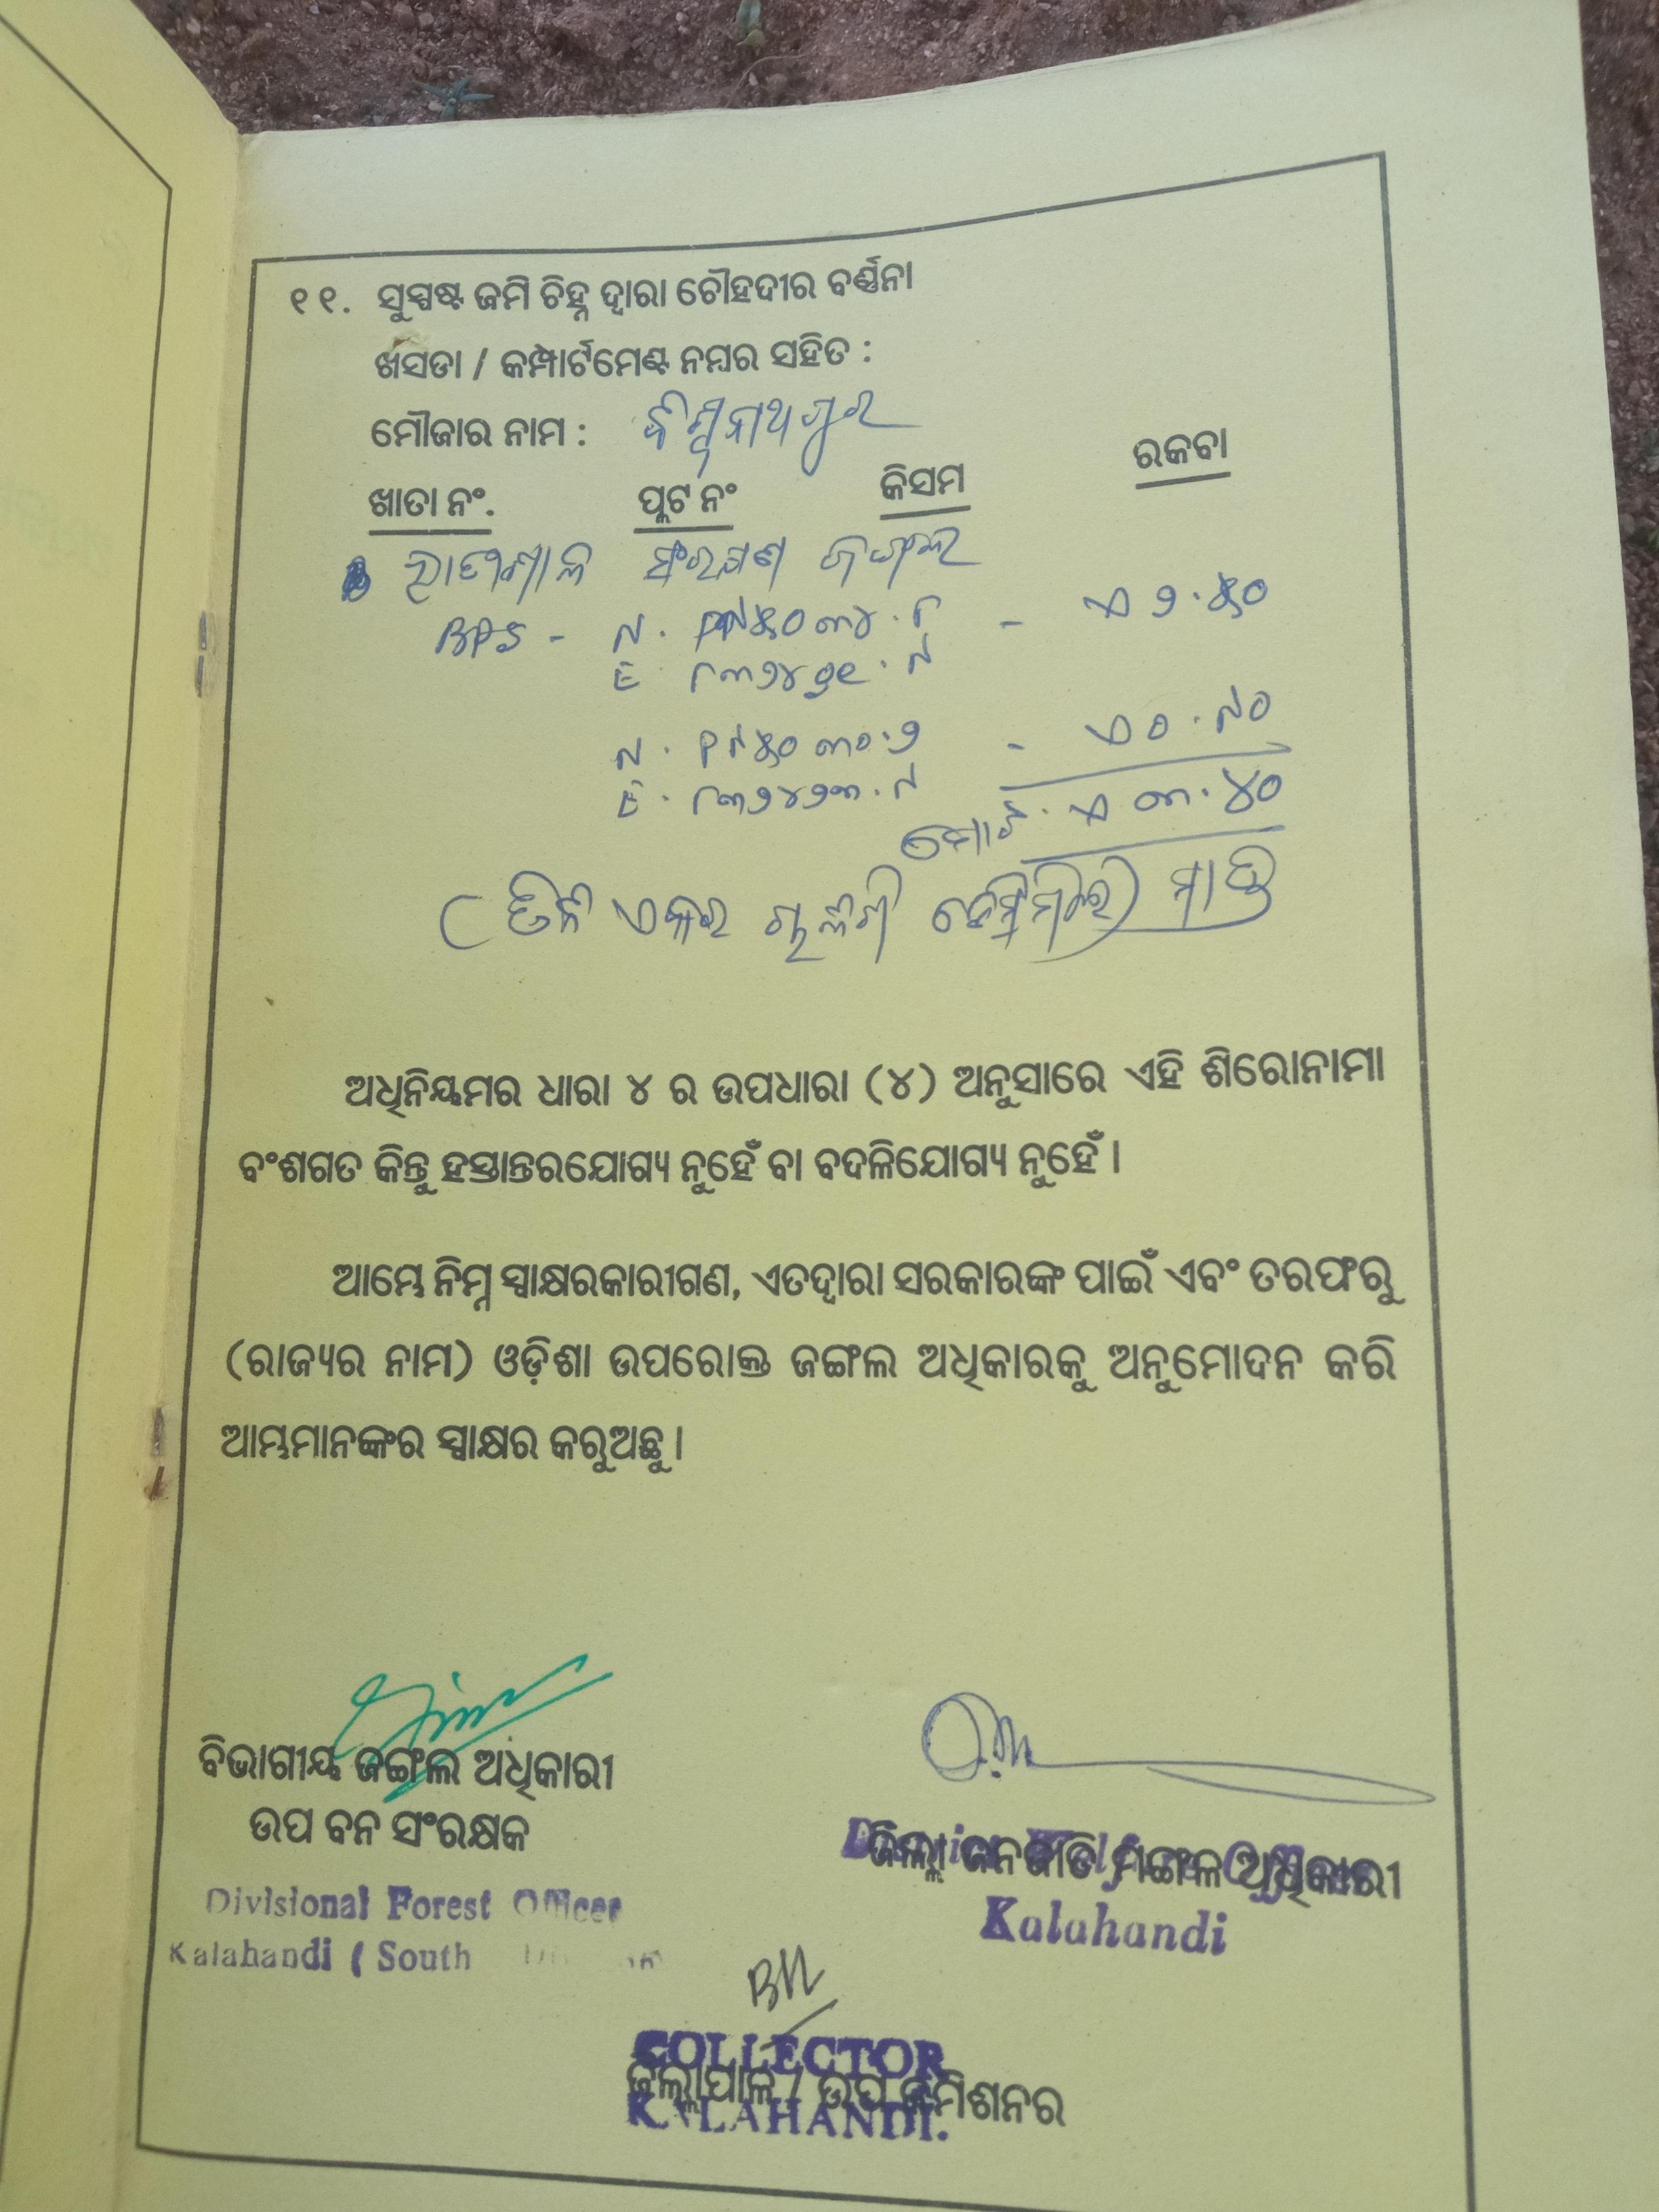 ୧୧. ସୁସ୍ପଷ୍ଟ ଜମି ଚିହ୍ନ ଦ୍ୱାରା ଚୌହଦୀର ବର୍ଣ୍ଣନା
ଖସଡା / କମ୍ପାର୍ଟମେଣ୍ଟ ନମ୍ବର ସହିତ :
ମୌଜାର ନାମ : ବିଶ୍ୱନାଥପୁର
ଖାତା ନଂ. ପ୍ଲଟ ନଂ କିସମ ରକବା
ସଂରକ୍ଷଣ ଜଙ୍ଗଲ
- ଏ ୨.୫୦
- ଏ ୦.୯୦
ମୋଟ. ଏ ୩.୪୦
( ତିନି ଏକର ଚାଳିଶି ଡେସିମିଲି) ମାତ୍ର
ଅଧିନିୟମର ଧାରା ୪ ର ଉପଧାରା (୪) ଅନୁସାରେ ଏହି ଶିରୋନାମା
ବଂଶଗତ କିନ୍ତୁ ହସ୍ତାନ୍ତରଯୋଗ୍ୟ ନୁହେଁ ବା ବଦଳିଯୋଗ୍ୟ ନୁହେଁ ।
ଆମ୍ଭେ ନିମ୍ନ ସ୍ୱାକ୍ଷରକାରୀଗଣ, ଏତଦ୍ୱାରା ସରକାରଙ୍କ ପାଇଁ ଏବଂ ତରଫରୁ
(ରାଜ୍ୟର ନାମ) ଓଡ଼ିଶା ଉପରୋକ୍ତ ଜଙ୍ଗଲ ଅଧିକାରକୁ ଅନୁମୋଦନ କରି
ଆମ୍ଭମାନଙ୍କର ସ୍ୱାକ୍ଷର କରୁଅଛୁ ।
ବିଭାଗୀୟ ଜଙ୍ଗଲ ଅଧିକାରୀ
ଉପ ବନ ସଂରକ୍ଷକ
Divisional Forest Officer
Kalahandi ( South
ଜିଲ୍ଲା ଜନଜାତି ମଙ୍ଗଳ ଅଧିକାରୀ
Kalahandi
COLLECTOR
ଜିଲ୍ଲାପାଳ / ଉପ କମିଶନର
KALAHANDI.